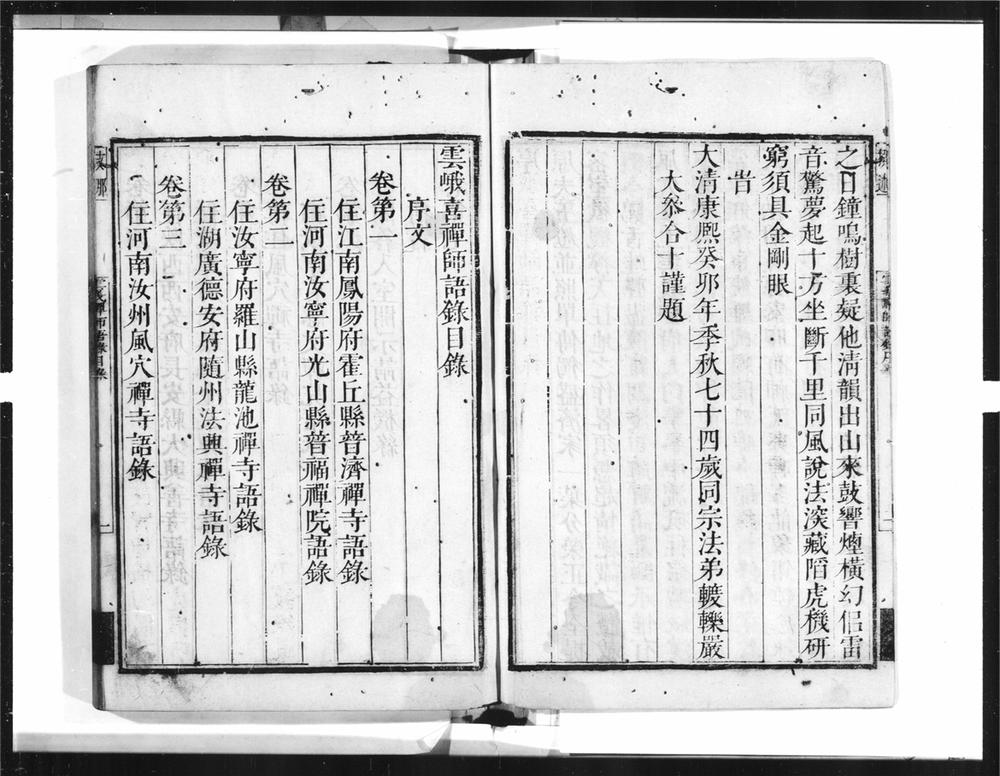 之日鐘鳴樹裏疑他淸韻出山來鼓響煙橫幻侶雷
音驚夢起十方坐斷千里同風說法深藏陷虎機研
窮須具金剛眼
旹
大淸康熙癸卯年季秋七十四歲同宗法弟轆轢嚴
大參合十謹題
雲峨喜禪師語錄目錄
序文
卷第一
住江南鳳陽府霍丘縣普濟禪寺語錄
住河南汝寧府光山縣普福禪院語錄
卷第二
住汝寧府羅山縣龍池禪寺語錄
住湖廣德安府隨州法興禪寺語錄
卷第三
住河南汝州風穴禪寺語錄